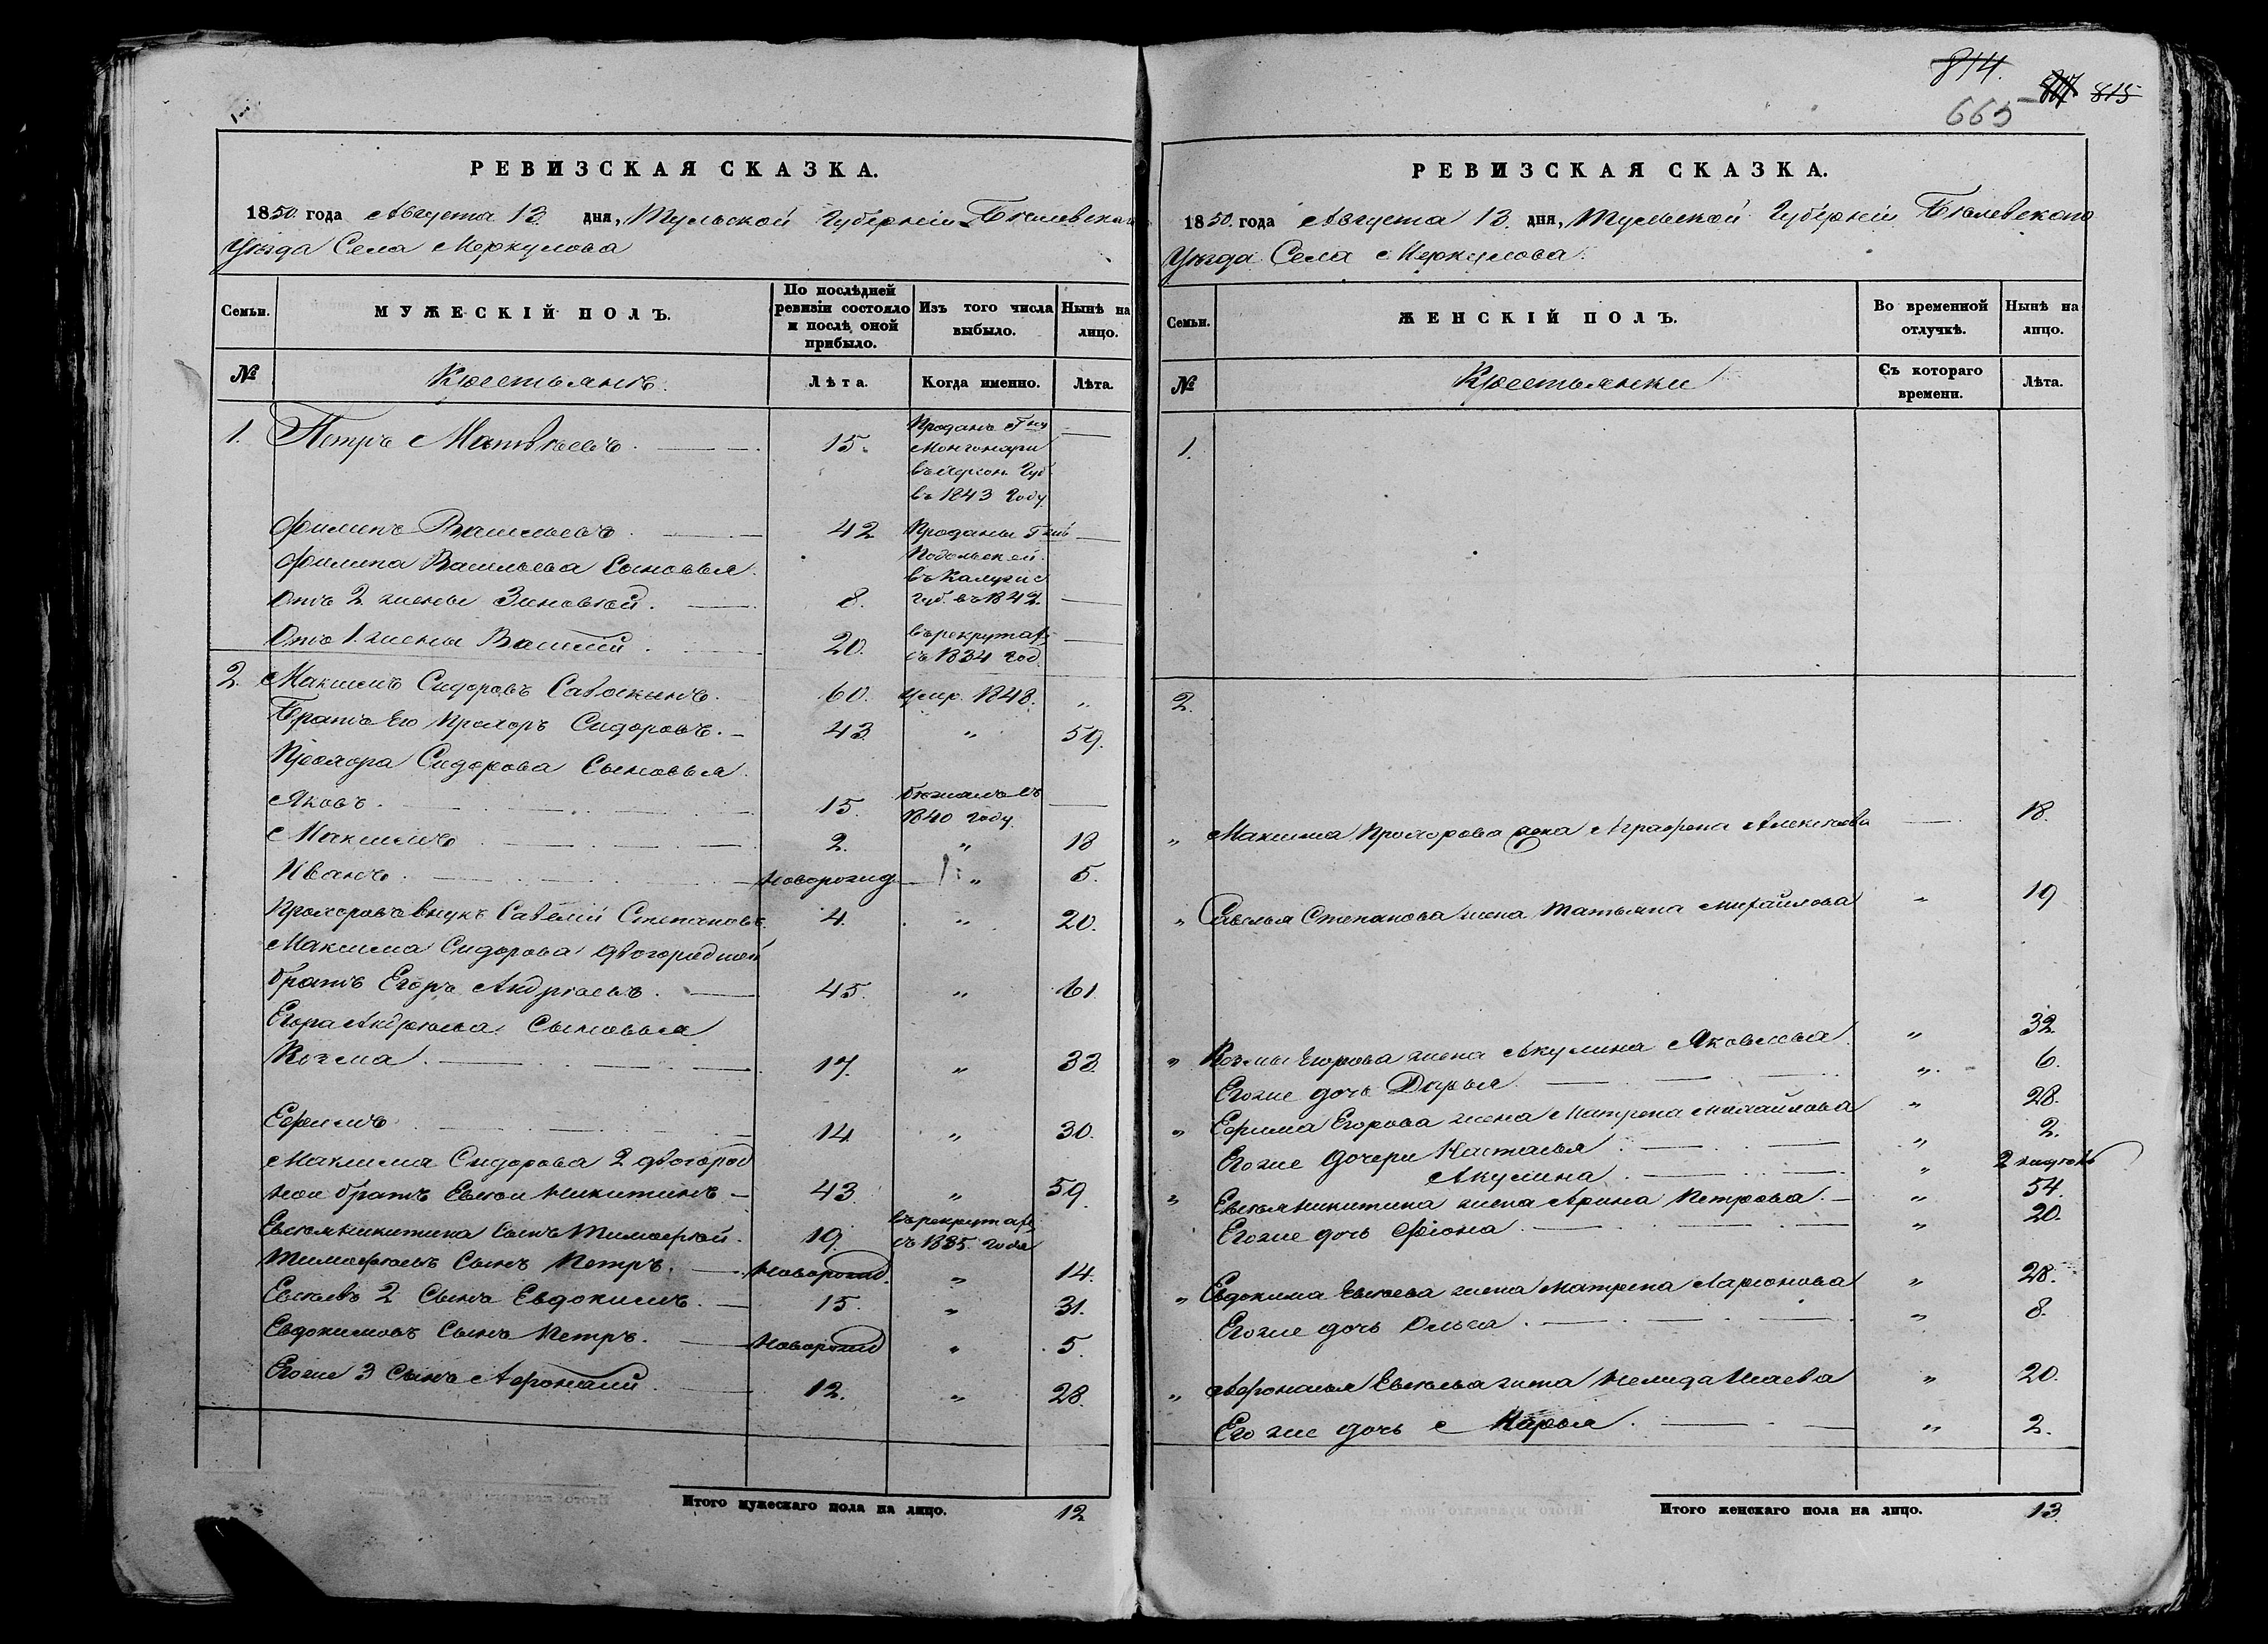 814.
807 815
665
РЕВИЗСКАЯ СКАЗКА.
1850. года Августа 13 дня, Тульской Губерніи Бѣлевскаго
Уѣзда Села Меркулова
Семьи. МУЖЕСКІЙ ПОЛЪ. По послѣдней ревизіи состояло и послѣ оной прибыло. Изъ того числа выбыло. Нынѣ на лицо.
№ Крестьянъ. Лѣта. Когда именно. Лѣта.
1. Петръ Матвѣевъ. 15. Проданъ Гну
въ Херсон. Губ.
въ 1843 Году
Филипъ Васильевъ. 42 Проданы Гжѣ
Филипа Васильева Сыновья. Подольской
въ Калугис
Отъ 2 жены Зиновѣй. 8. Губ. въ 1842.
Отъ 1. жены Василій. 20. въ рекрутах
съ 1834 год.
2. Максимъ Сидоровъ Савоскинъ. 60. умр. 1848. „
Братъ Его Прохоръ Сидоровъ. 43 „ 59.
Прохора Сидорова Сыновья.
Яковъ. 15. бѣжалъ въ
1840 Году.
Максимъ 2. „ 18
Иванъ. новорожд „ 5.
Прохоровъ внукъ Савелій Степановъ. 4. „ 20.
Максима Сидорова двогородной
братъ Егоръ Андрѣевъ. 45. „ 61.
Егора Андрѣева Сыновья
Козма. 17. „ 33.
Ефимъ 14 „ 30.
Максима Сидорова 2 двогород
ной братъ Евсѣй Никитинъ 43 „ 59.
Евсѣя Никитина Сынъ Тимофѣй. 19. въ рекрутах
съ 1835. года
Тимофѣевъ Сынъ Петръ. Новорожд. „ 14.
Евсѣевъ 2 Сынъ Евдокимъ. 15. „ 31.
Евдокимовъ Сынъ Петръ. Новорожд „ 5.
Егоже 3 Сынъ Афонасій 12. „ 28.
Итого мужескаго пола на лицо. 12
РЕВИЗСКАЯ СКАЗКА.
1850. года Августа 13. дня, Тульской Губерніи Бѣлевскаго
Уѣзда Села Меркулова.
Семьи. ЖЕНСКІЙ ПОЛЪ. Во временной отлучкѣ. Нынѣ на лицо.
№ Крестьянки Съ котораго времени. Лѣта.
1.
2.
„ Максима Прохорова жена Аграфена Алексѣева 18.
„ Савелья Степанова жена Татьяна Михайлова „ 19
„ Козмы Егорова жена Акулина Яковлева „ 32.
Егоже дочь Дарья. „ 6.
„ Ефима Егорова жена Матрена Михайлова „ 28.
Егоже дочери Настасья „ 2.
Акулина. „ 2 недѣль
„ Евсѣя Никитина жена Арина Петрова. „ 54.
Егоже дочь Фіона „ 20.
„ Евдокима Евсѣева жена Матрена Ларионова „ 28.
Егоже дочь Ольга. „ 8.
„ Афонасья Евсѣева жена Нелида Исаева „ 20.
Егоже дочь Марья. „ 2.
Итого женскаго пола на лицо. 13.